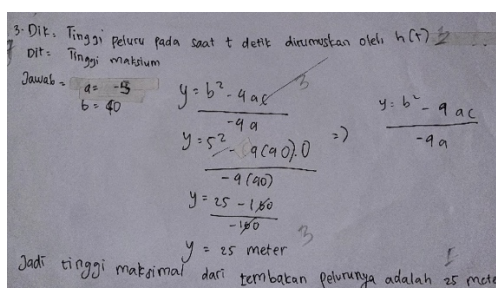 3. Dik: Tinggi peluru pada saat t detik dirumuskan oleh h(t)
Dit: Tinggi maksium
Jawab = a = -5
b = 40
y = b² - 4ac / -4a
y = 5² - 4(40).0 / -4(40)
=) y = b² - 4ac / -4a
y = 25 - 160 / -160
y = 25 meter
3
3
Jadi tinggi maksimal dari tembakan pelurunya adalah 25 mete